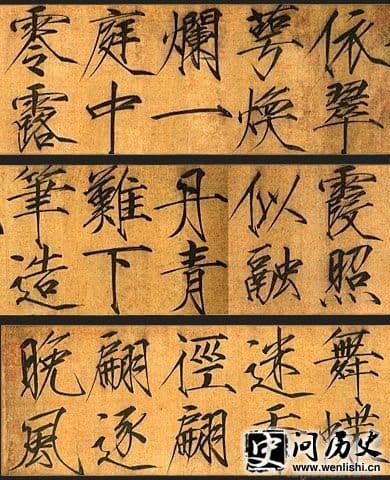 依翠
萼煥
爛一
庭中
零露
霞照
似融
丹青
難下
筆造
舞蝶
迷
徑翩
翩逐
晚風
史问历史
www.wenlishi.cn